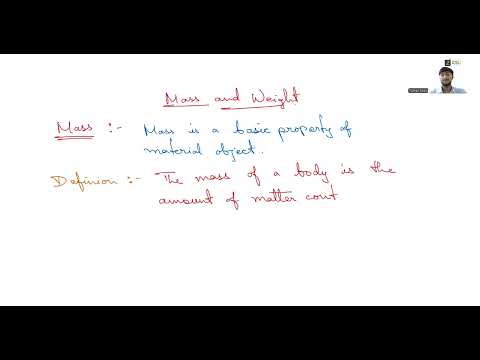 Mass and Weight
Mass :- Mass is a basic property of
material object.
Definion :- The mass of a body is the
amount of matter cont